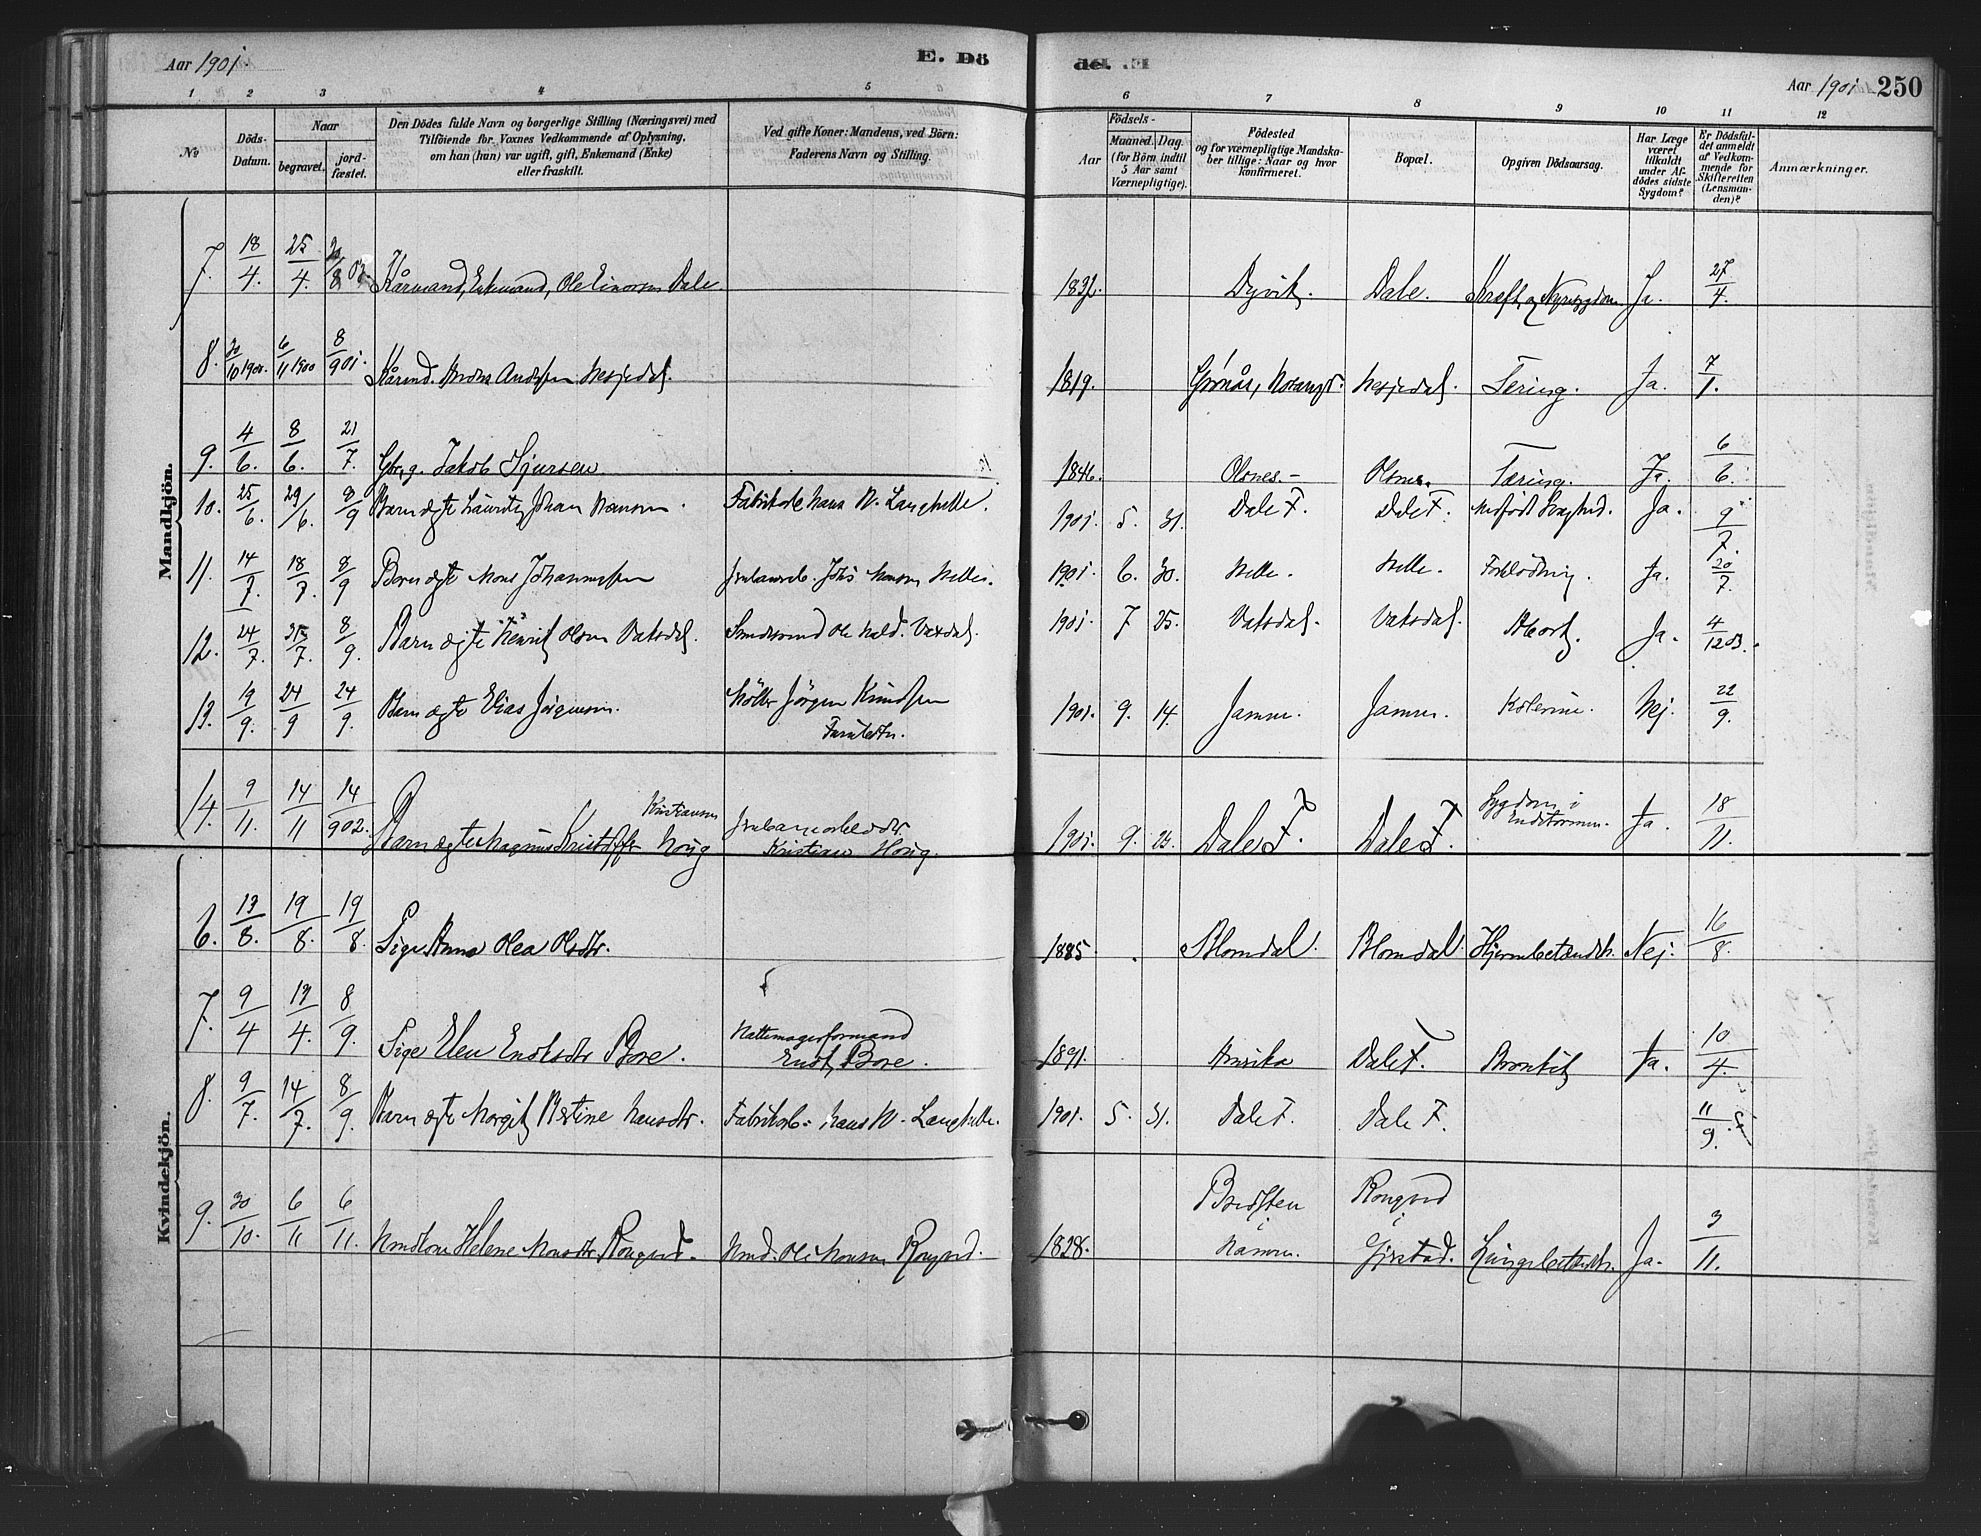 Aar 1901.
E. Dö
de.
Aar 1901. 250
1 2 3 4 5 6 7 8 9 10 11 12
No
Döds-Datum.
Naar
begravet.
jord-fæstet.
Den Dödes fulde Navn og borgerlige Stilling (Næringsvei) med
Tilföiende for Voxnes Vedkommende af Oplysning,
om han (hun) var ugift, gift, Enkemand (Enke)
eller fraskilt.
Ved gifte Koner: Mandens, ved Börn:
Faderens Navn og Stilling.
Födsels-
Aar
Maaned. Dag.
(for Börn indtil
5 Aar samt
Værnepligtige).
Födested
og for værnepligtige Mandska-
ber tillige: Naar og hvor
konfirmeret.
Bopæl.
Opgiven Dödsaarsag.
Har Læge
været
tilkaldt
under Af-
dödes sidste
Sygdom?
Er Dödsfal-
det anmeldt
af Vedkom-
mende for
Skifteretten
(Lensman-
den)?
Anmærkninger.
Mandkjön.
7. 18/4. 25/4. Kårmand, Enkemand, Ole Einarsen Dale 1832. Dyvik. Dale. Kræft og Nyresygdom Ja. 27/4.
8. 30/10 1900. 6/11 1900 8/9 01. Kårmd. Anders Andersen Nesjedal. 1819. Nesjedal. Tæring. Ja. 7/1.
9. 4/6. 8/6. 21/7. Gbrg. Jakob Sjursen 1846. Olsnes. Olsnes. Tæring. Ja. 6/6.
10. 25/6. 29/6. 8/9 Barn ægte Lauritz Johan Hansen. Fabrikarb. Hans N. Langhelle. 1901. 5. 31. Dale F. Dale F. Medfödt Svaghed. Ja. 9/7.
11. 14/7. 18/7. 8/9 Barn ægte Mons Johannessen Jernbanearb. Johs Monsen Helle. 1901. 6. 30. Helle. Helle. Forblödning. Ja. 20/7.
12. 24/7. 8/9. Barn ægte Henrik Olsen Vatsdal. Ole Vaxdal. 1901. 7 25. Vatsdal. Vatsdal. Ja. 4/12 03.
13. 19/9. 24/9 24/9. Barn ægte Elias Jörgensen. Möller Jörgen Knudsen 1901. 9. 14. Jamne. Jamne. Kolerine. Nej. 22/9.
14. 9/11. 14/11 14/9 02. Barn ægte Magnus Kristoffer Kristiansen Houg Jernbanearbeider Kristian Houg. 1901. 9. 23. Dale F. Dale F. Sygdom i Endetarmen. Ja. 18/11.
Kvindekjön.
6. 13/8. 19/8. 19/8. Pige Anna Olea Olsdtr. 1885. Blomdal. Blomdal. Hjernebetændels. Nej. 16/8.
7. 9/4 13/4. 8/9. Pige Elen Bore. Hattemagerformand Bore. 1891. Amrika Dale F. Bronkit Ja. 10/4.
8. 9/7. 14/7. 8/9. Barn ægte Margit Bertine Hansdtr. Fabrikarb. Hans N. Langhelle. 1901. 5. 31. Dale F. Dale F. 11/9.
9. 30/10. 6/11 6/11. Helene Monsdtr Rongved. Ole Monsen Rongved. 1828. i Hammer. Rongved i Gjerstad. Lungebetændels. Ja. 3/11.